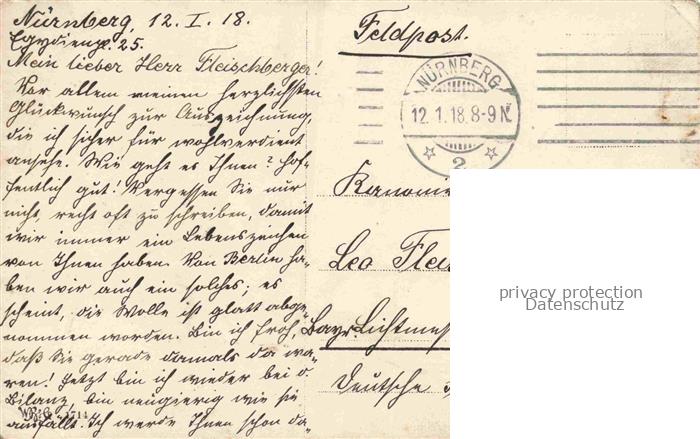 Nürnberg, 12. I. 18.
Egydienpl. 25.
Mein lieber Herr Fleischberger!
Vor allem meinen herzlichsten
Glückwunsch zur Auszeichnung,
die ich sicher für wohlverdient
ansehe. Wie geht es Ihnen? Hof-
fentlich gut! Vergessen Sie nur
nicht, recht oft zu schreiben, damit
wir immer ein Lebenszeichen
von Ihnen haben. Von Berlin ha-
ben wir auch ein solches; es
scheint, die Wolle ist glatt abge-
nommen worden. Bin ich froh,
daß Sie gerade damals da wa-
ren! Jetzt bin ich wieder bei d.
Bilanz, bin neugierig wie sie
ausfällt. Ich werde Ihnen schon da-
Feldpost.
NÜRNBERG
12.1.18.8-9 N.
2
Kanonie
Leo Fleis
Bayr. Lichtmeß
Deutsche
privacy protection
Datenschutz